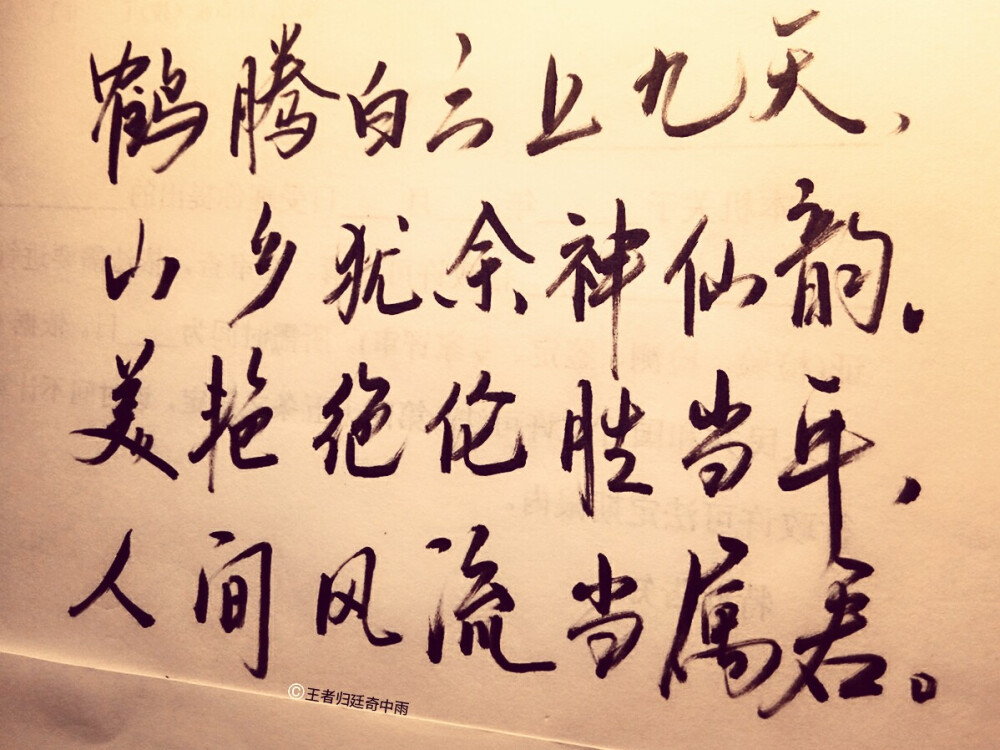 鹤腾白云上九天，
山乡犹余神仙韵。
美艳绝伦胜当年，
人间风流当属君。
©王者归廷奇中雨